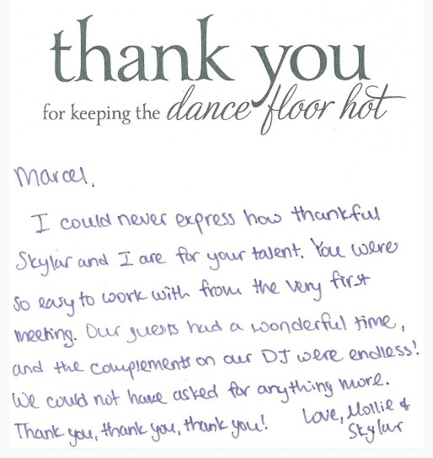 thank you
for keeping the dance floor hot
Marcel,
I could never express how thankful
Skylar and I are for your talent. You were
so easy to work with from the very first
meeting. Our guests had a wonderful time,
and the complements on our DJ were endless!
We could not have asked for anything more.
Thank you, thank you, thank you! Love, Mollie &
Skylar